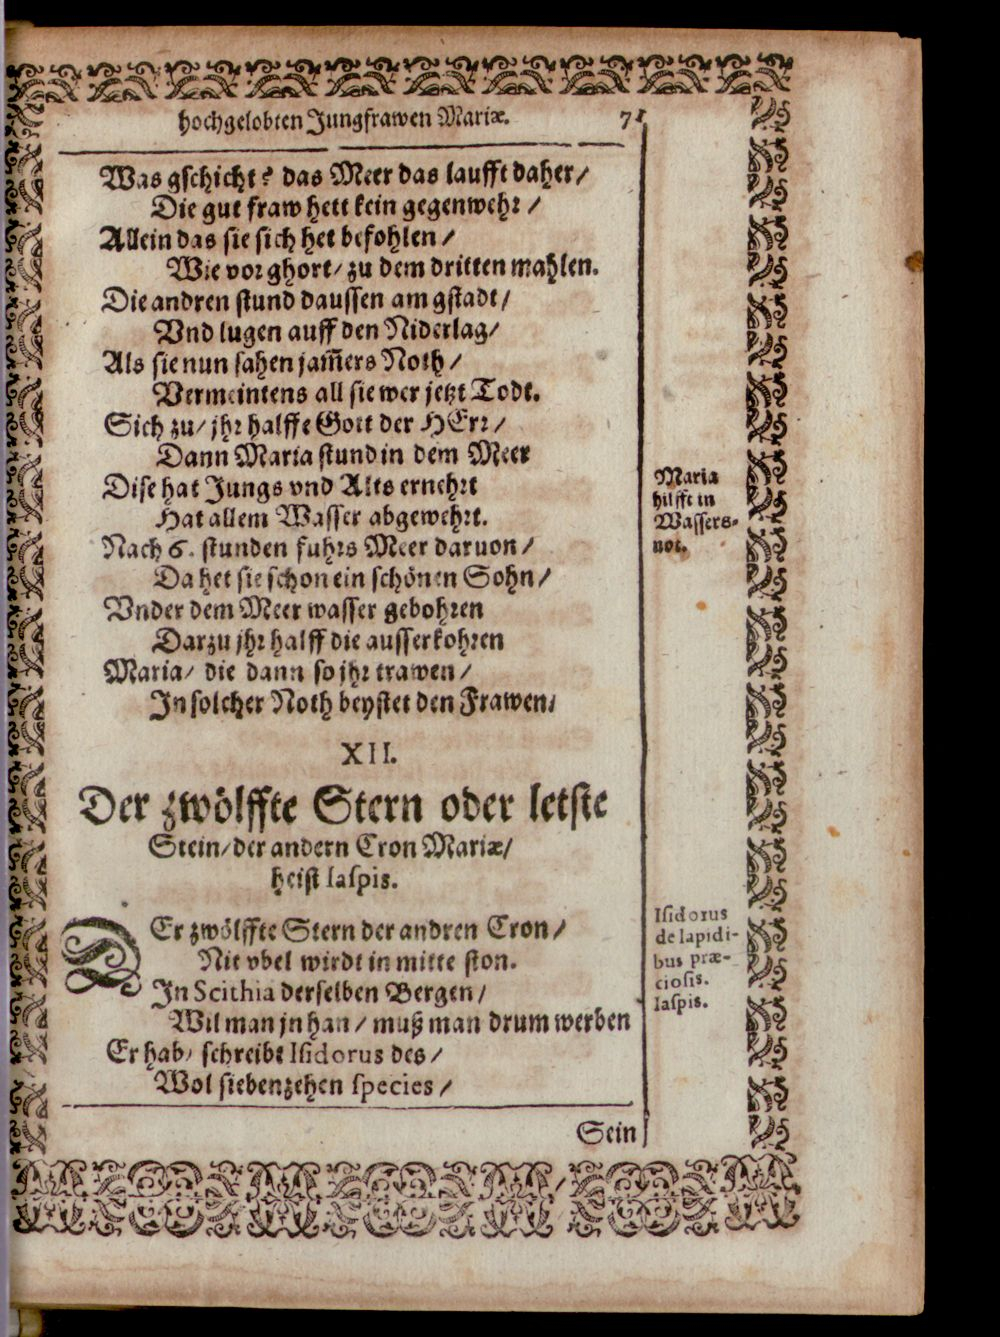 hochgelobten Jungfrawen Mariæ. 71
Was gschicht? das Meer das laufft daher/
Die gut fraw hett kein gegenwehr/
Allein das sie sich het befohlen/
Wie vor ghort/ zu dem dritten mahlen.
Die andren stund daussen am gstadt/
Vnd lugen auff den Niderlag/
Als sie nun sahen jam̃ers Noth/
Vermeintens all sie wer jetzt Todt.
Sich zu/ jhr halffe Gott der HErr/
Dann Maria stund in dem Meer
Dise hat Jungs vnd Alts ernehrt
Hat allem Wasser abgewehrt.
Nach 6. stunden fuhrs Meer daruon/
Da het sie schon ein schönen Sohn/
Vnder dem Meer wasser gebohren
Darzu jhr halff die ausserkohren
Maria/ die dann so jhr trawen/
In solcher Noth beystet den Frawen/
Maria
hilfft in
Wassers-
not.
XII.
Der zwölffte Stern oder letste
Stein/ der andern Cron Mariæ/
heist Iaspis.
DEr zwölffte Stern der andren Cron/
Nit vbel wirdt in mitte ston.
In Scithia derselben Bergen/
Wil man jn han/ muß man drum werben
Er hab/ schreibt Isidorus des/
Wol siebenzehen species/
Isidorus
de lapidi-
bus præ-
ciosis.
Iaspis.
Sein